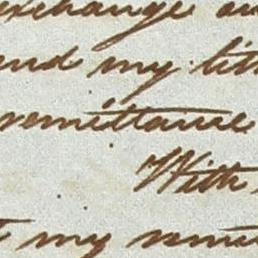 exchange
and my
remittance
With
my